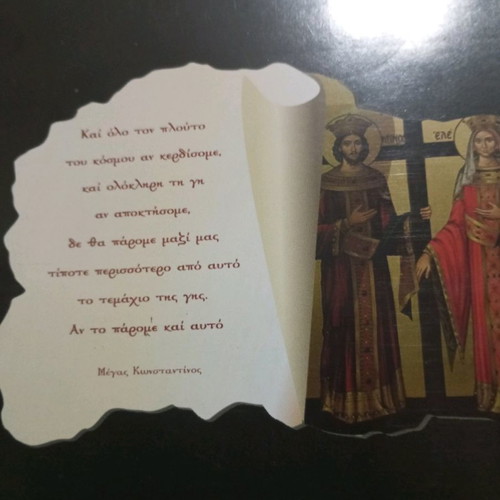 Καί όλο τον πλούτο
του κόσμου αν κερδίσομε,
καί ολόκληρη τη γη
αν αποκτήσομε,
δε θα πάρομε μαζί μας
τίποτε περισσότερο από αυτό
το τεμάχιο της γης.
Αν το πάρομε καί αυτό
Μέγας Κωνσταντίνος
ΕΛΕ